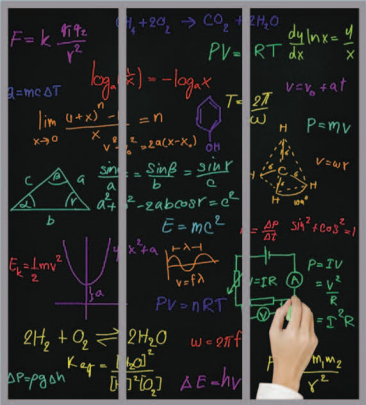 F = k q₁q₂/r²
H₄ + 2O₂ → CO₂ + 2H₂O
PV = RT
dy/dx ln x = y/x
logₐ(1/x) = -logₐx
Q = mcΔT
v = v₀ + at
T = 2π/ω
lim x→0 (1+x)ⁿ-1/x = n
OH
P = mv
v² = 2a(x-x₀)
H
C
H
H
H
v = ωr
c β a
α γ
b
sinα/a = sinβ/b = sinγ/c
a² + b² - 2abcosγ = c²
E = mc²
= ΔP/Δt
sin² + cos² = 1
Eₖ = 1/2 mv²
x² + a
a
λ
v = fλ
V = IR
A
V
P = IV
= V²/R
= I²R
PV = nRT
2H₂ + O₂ ⇌ 2H₂O
ω = 2πf
Keq = [H₂O]²/[H₂]²[O₂]
ΔP = ρgΔh
ΔE = hv
m₁m₂/r²